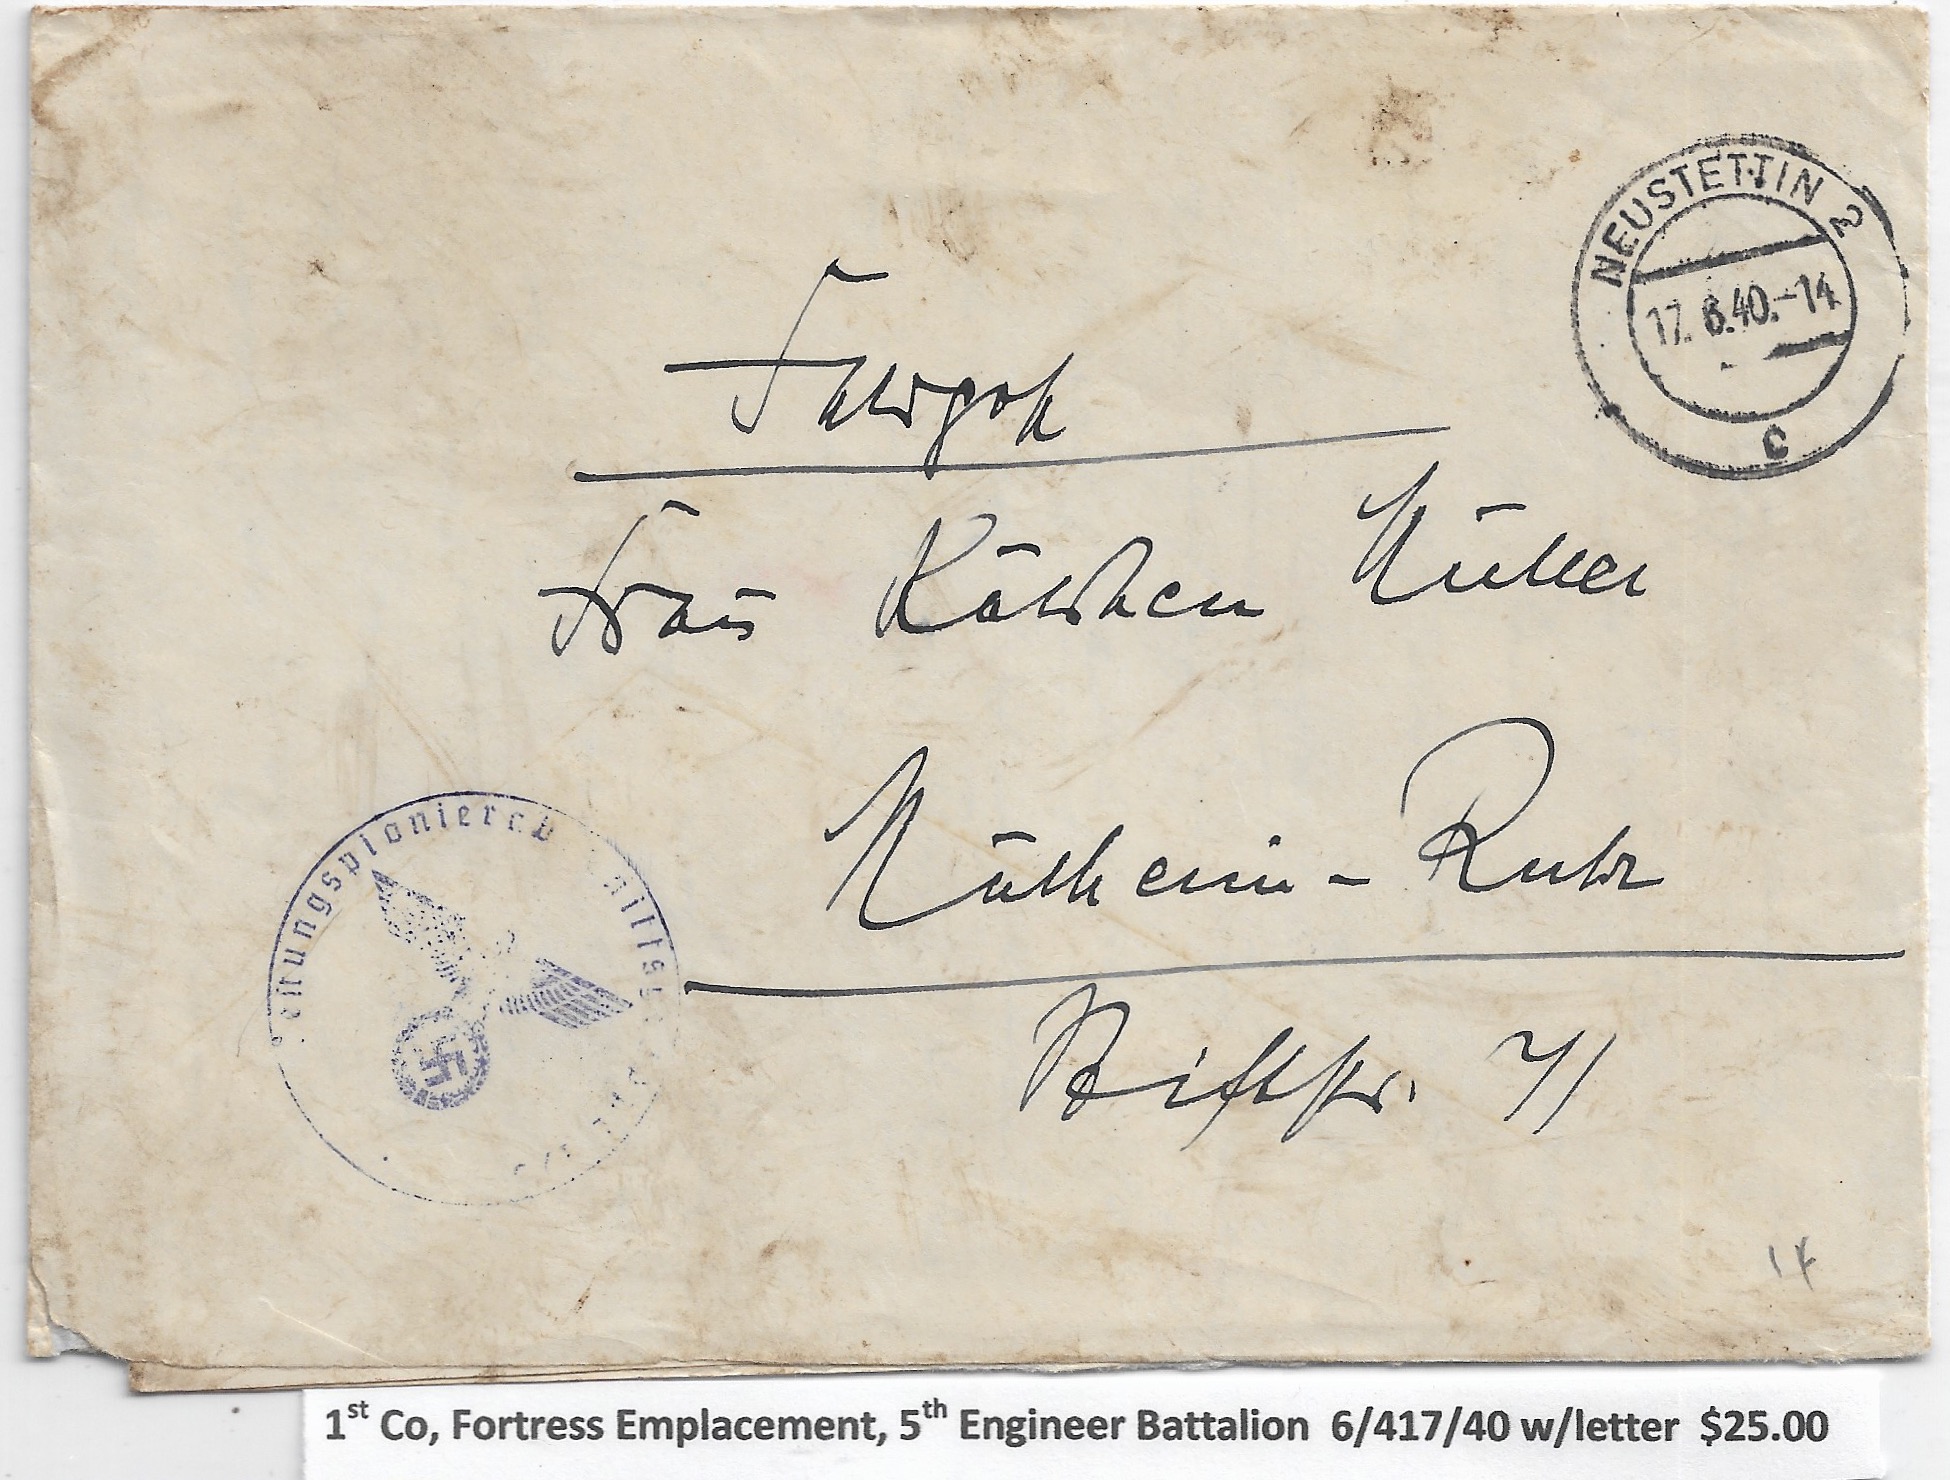 NEUSTETTIN 2
17. 6.40.-14
c
Feldpost
Frau Käthchen Müller
Mülheim-Ruhr
Stiftstr. 71
1st Co, Fortress Emplacement, 5th Engineer Battalion 6/417/40 w/letter $25.00